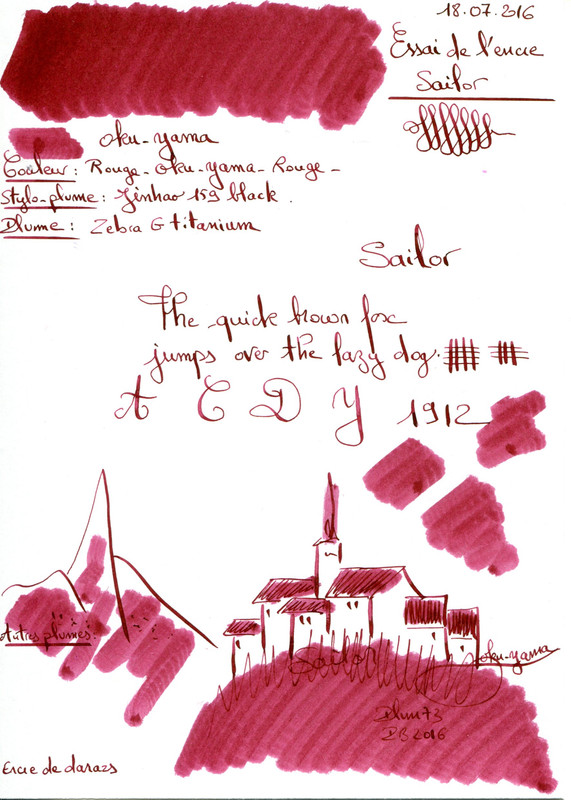 18.07.2016
Essai de l'encre
Sailor
oku-yama
Couleur : Rouge-oku-yama-Rouge-
Stylo-plume : Jinhao 159 black.
Plume : Zebra G titanium
Sailor
The quick brown fox
jumps over the lazy dog.
A C D Y 1912
Autres plumes :
Sailor
oku-yama
2016
Encre de